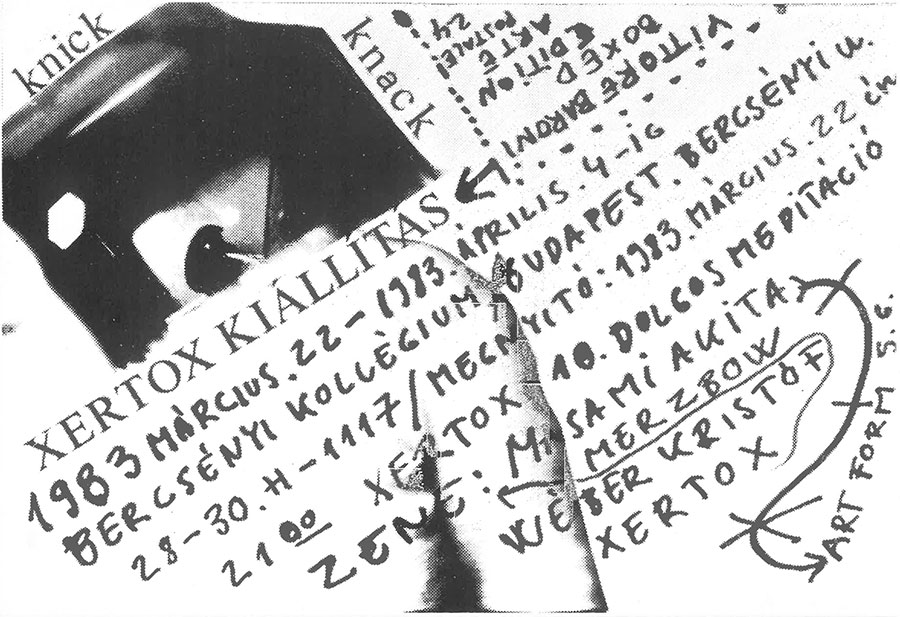 knick
knack
VITTORE BARONI
BOXED
EDITION
ARTE
POSTALE!
24.
XERTOX KIÁLLÍTÁS
1983 MÁRCIUS.22-1983.ÁPRILIS.4-IG
BERCSÉNYI KOLLÉGIUM BUDAPEST. BERCSÉNYI U.
28-30.H-1117/MEGNYITÓ:1983.MÁRCIUS.22 én
21 00 XERTOX 10. DOLGOS MEDITÁCIÓ
ZENE: MASAMI AKITA,
MERZBOW
WÉBER KRISTÓF
XERTOX
ART FORM S.G.